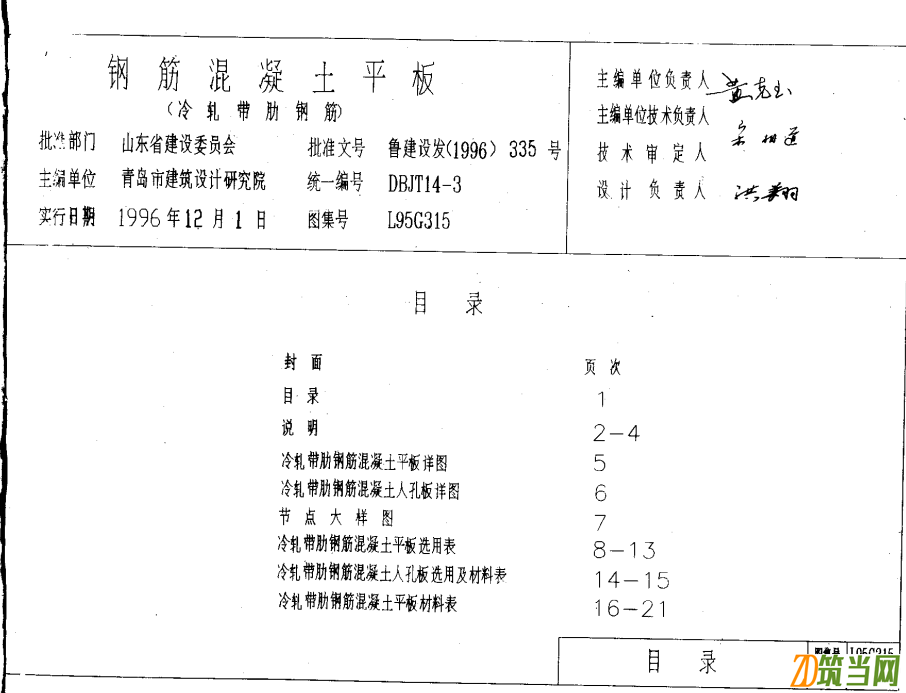 钢筋混凝土平板
(冷轧带肋钢筋)
批准部门 山东省建设委员会 批准文号 鲁建设发(1996) 335 号
主编单位 青岛市建筑设计研究院 统一编号 DBJT14-3
实行日期 1996年12月1日 图集号 L95G315
主编单位负责人
主编单位技术负责人
技术审定人
设计负责人
目录
封面 页次
目录 1
说明 2-4
冷轧带肋钢筋混凝土平板详图 5
冷轧带肋钢筋混凝土人孔板详图 6
节点大样图 7
冷轧带肋钢筋混凝土平板选用表 8-13
冷轧带肋钢筋混凝土人孔板选用及材料表 14-15
冷轧带肋钢筋混凝土平板材料表 16-21
目录 图集号 L95G315
筑当网